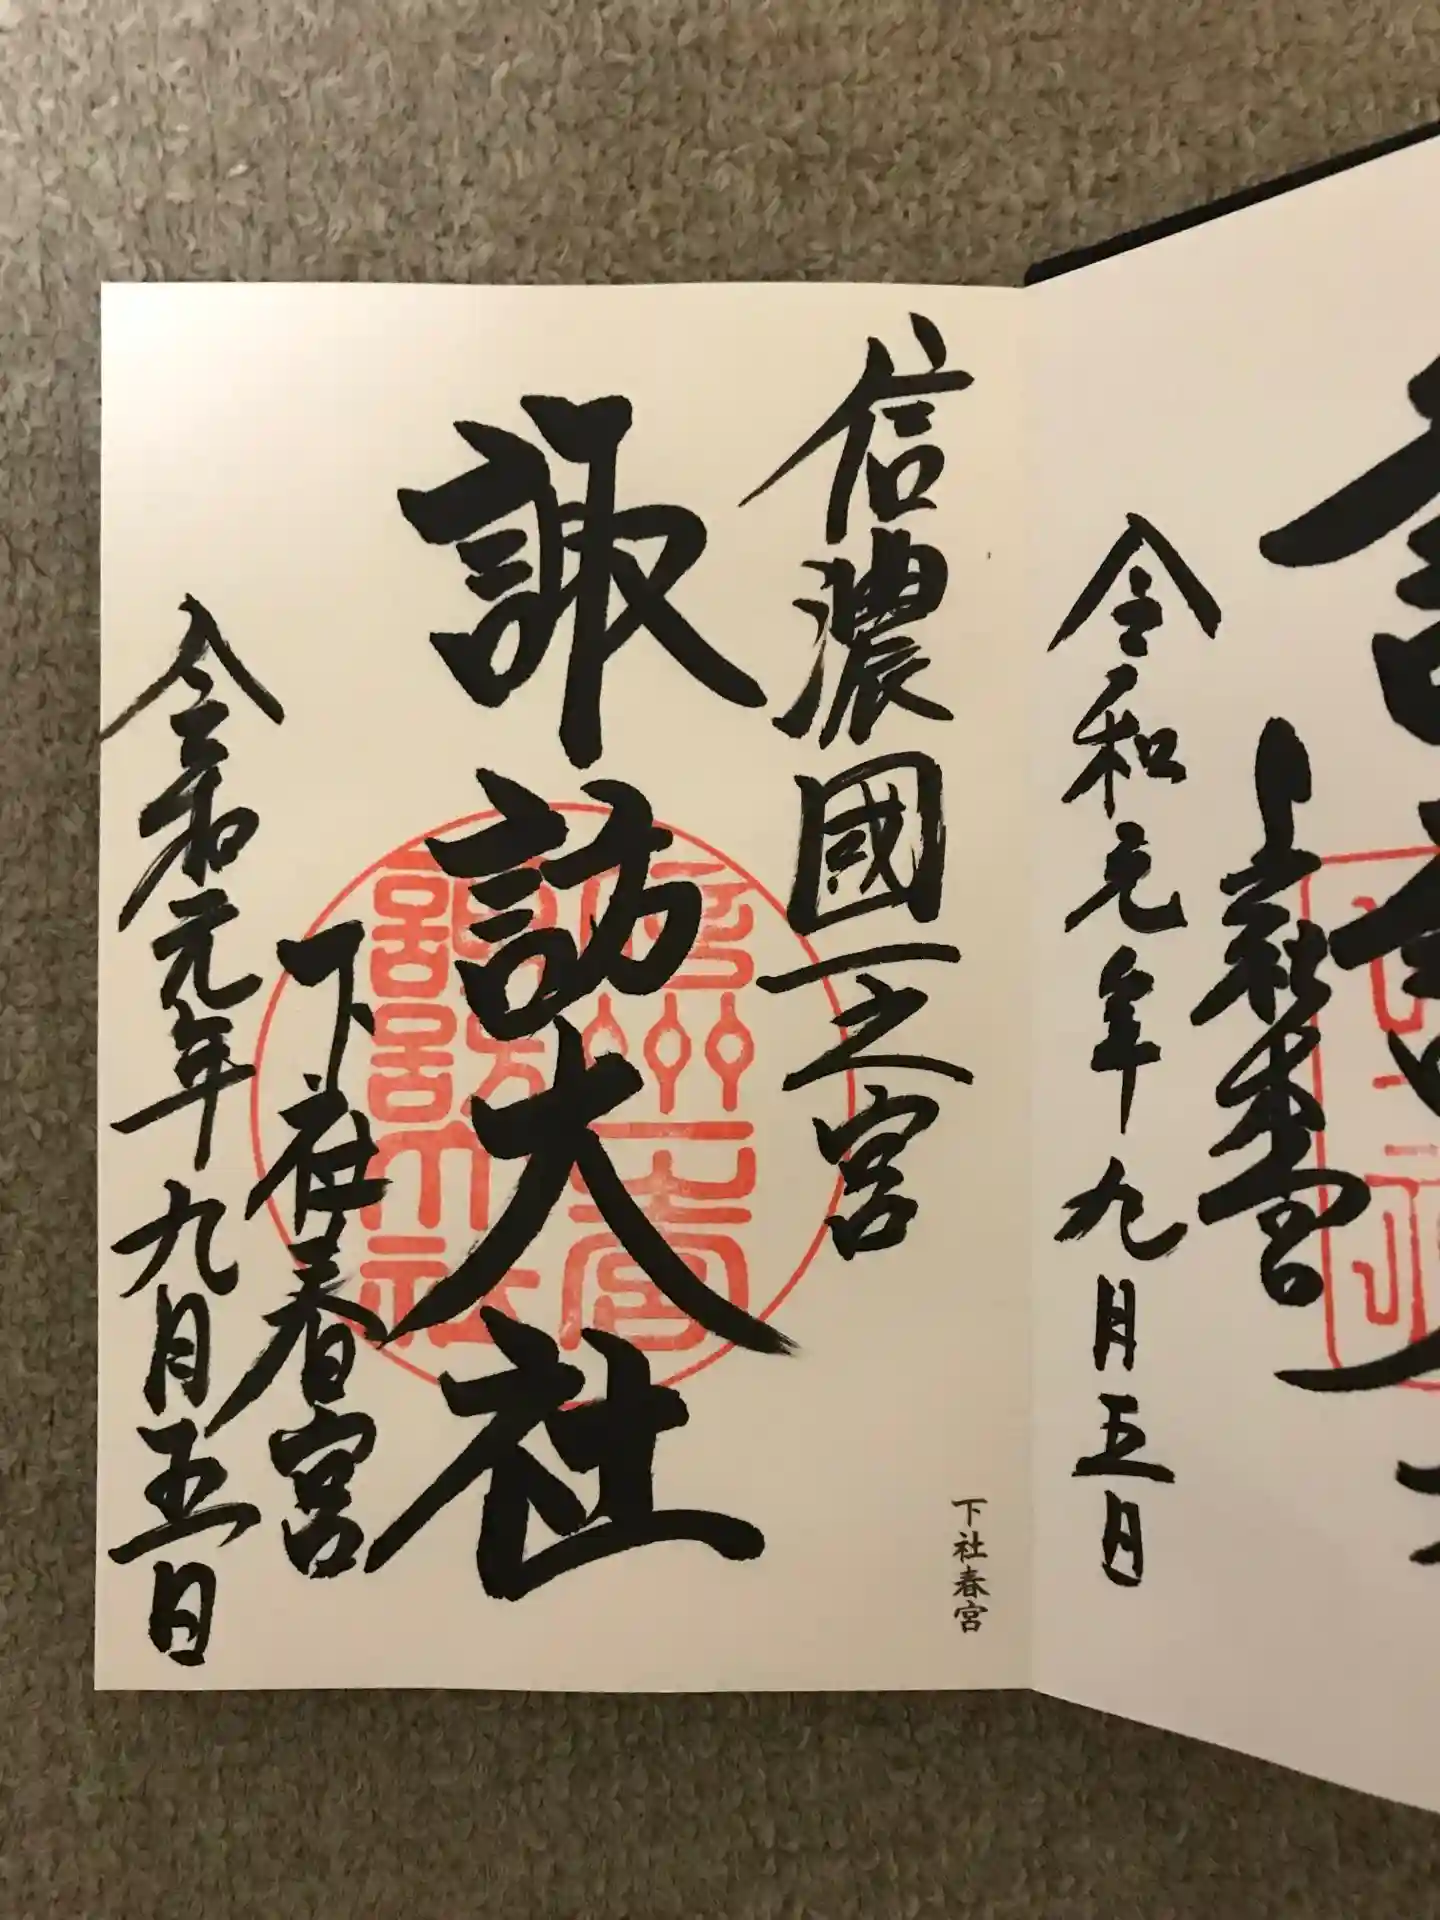 上社本宮
令和元年九月五日
信濃國一之宮
諏訪大社
下社春宮
令和元年九月五日
下社春宮